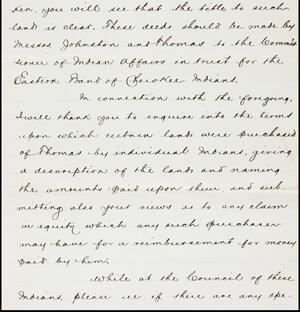 ken, you will see that the title to such
land is clear. These deeds should be made by
Messrs Johnston and Thomas to the Commis
sioner of Indian Affairs in trust for the
Eastern Band of Cherokee Indians.
In connection with the foregoing,
I will thank you to enquire into the terms
upon which certain lands were purchased
of Thomas by individual Indians, giving
a description of the lands and naming
the amounts paid upon them, and sub
mitting also your views as to any claim
in equity which any such purchaser
may have for a reimbursement for money
paid by him.
While at the Council of these
Indians, please see if there are any spe-